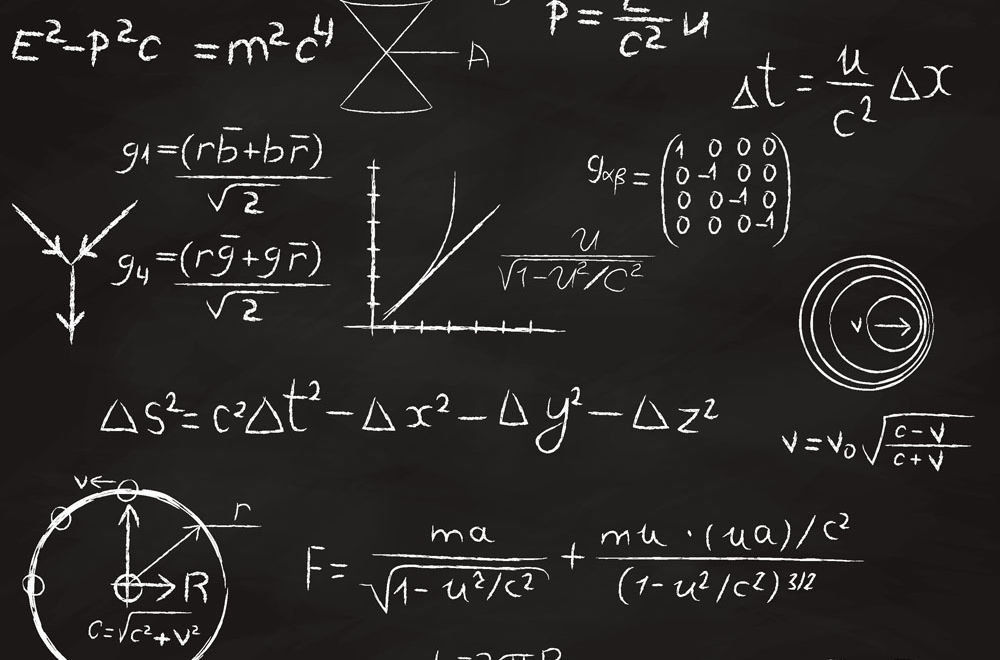 E²-P²c = m²c⁴
A
P = E/c² u
Δt = u/c² Δx
g1 = (rb̄+br̄)/√2
g_αβ = (1 0 0 0
0 -1 0 0
0 0 -1 0
0 0 0 -1)
g4 = (rḡ+gr̄)/√2
u/√1-u²/c²
v
ΔS² = c²Δt² - Δx² - Δy² - Δz²
v = v₀√(c-v/c+v)
v
r
R
C = √c²+v²
F = ma/√1-u²/c² + mu·(ua)/c²/(1-u²/c²)3/2